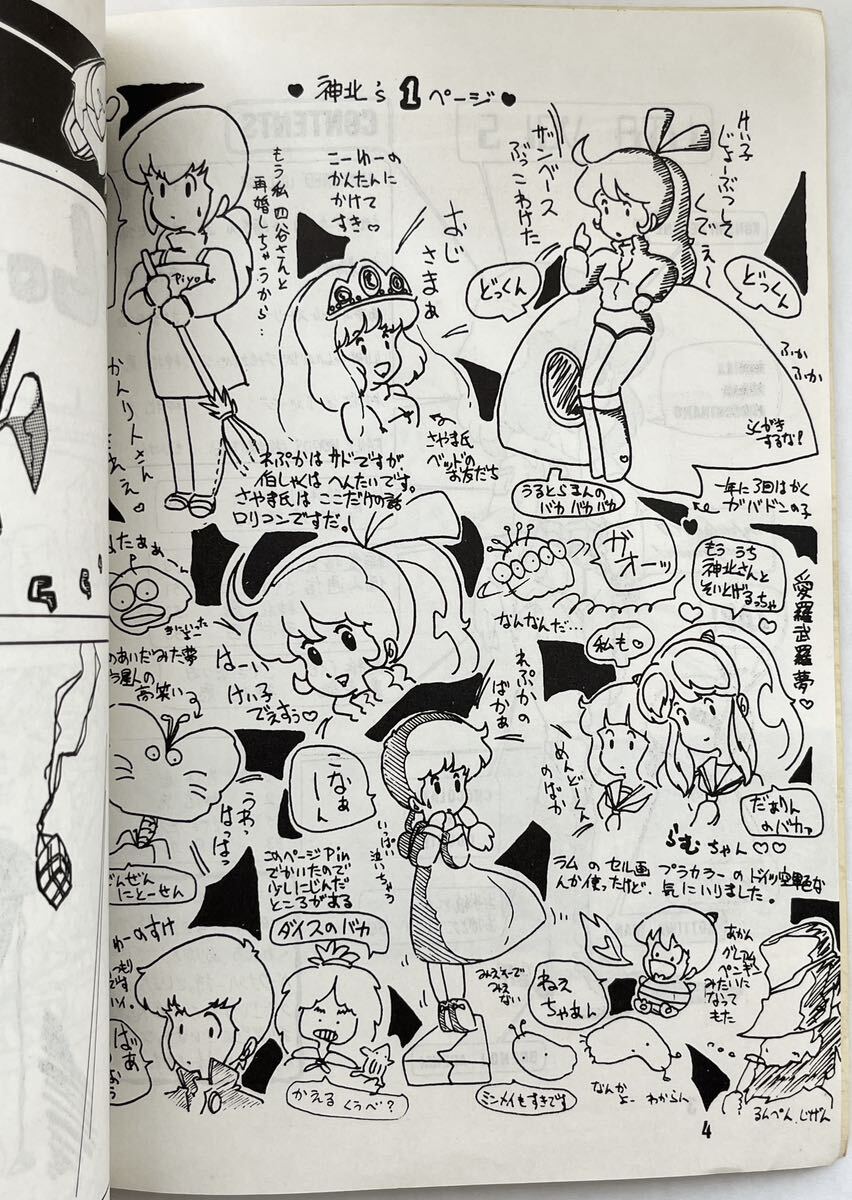 ♥神北's 1ページ♥
けい子
じょーぶつして
くでェ〜
ザンベース
ぶっこわけた
どっくん
どっくん
ふかふか
らくがき
するな!
一年に3回はかく
ガバドンの子
うるとらまんの
バカ バカ バカ
こーゆーの
かんたんに
かけて
すき♡
おじ
さまぁ
さやま氏
ベッドの
お友だち
もう私四谷さんと
再婚しちゃうから…
Piyo
かんリ人さん
れぷかはサドですが、
伯しゃくはへんたいです。
さやま氏は ここだけの話
ロリコンですだ。
ガオーッ
なんなんだ…
もう うち
神北さんと
そいとげるっちゃ
愛羅武羅夢♡
私も♡
だぁりん
のバカァ
らむちゃん♡♡
めんどーくん
のばか
ラムのセル画 プラカラーのドイツ空軍色な
んか使ったけど、気にいりました。
れぷかの
ばかぁ
いっぱい
泣いちゃう
はーい
けい子
でえすぅ♡
たまぁー
きにいった
よーこ
のあいだみた夢
う屋人の
高笑い
うわっ
はっはっ
ぜんぜん
にとーせん
こなぁ
ーん
このページPin
でかいたので
少しにじんだ
ところがある
ダイスのバカ
かえる くぅべ?
ゆーのすけ
ばぁ
みえそーで
みえない
ねえ
ちゃあん
ミンメイもすきです
なんか
よー わからん
あかん
グレアム
ペンギン
みたいに
なって
もた
るんぺん、じげん
4